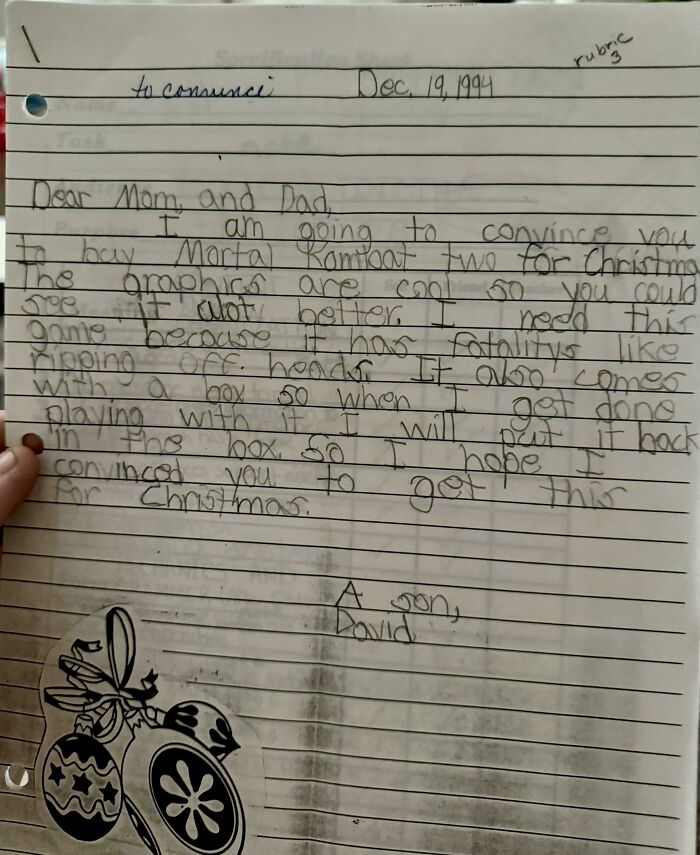 rubric
3
to convince
Dec. 19, 1994
Dear Mom, and Dad,
I am going to convince you
to buy Mortal Kombat two for Christma
The graphics are cool so you could
see it alot better. I need this
game because it has fatalitys like
ripping off heads. It also comes
with a box so when I get done
playing with it I will put it back
in the box. So I hope I
convinced you to get this
for Christmas.
A son,
David